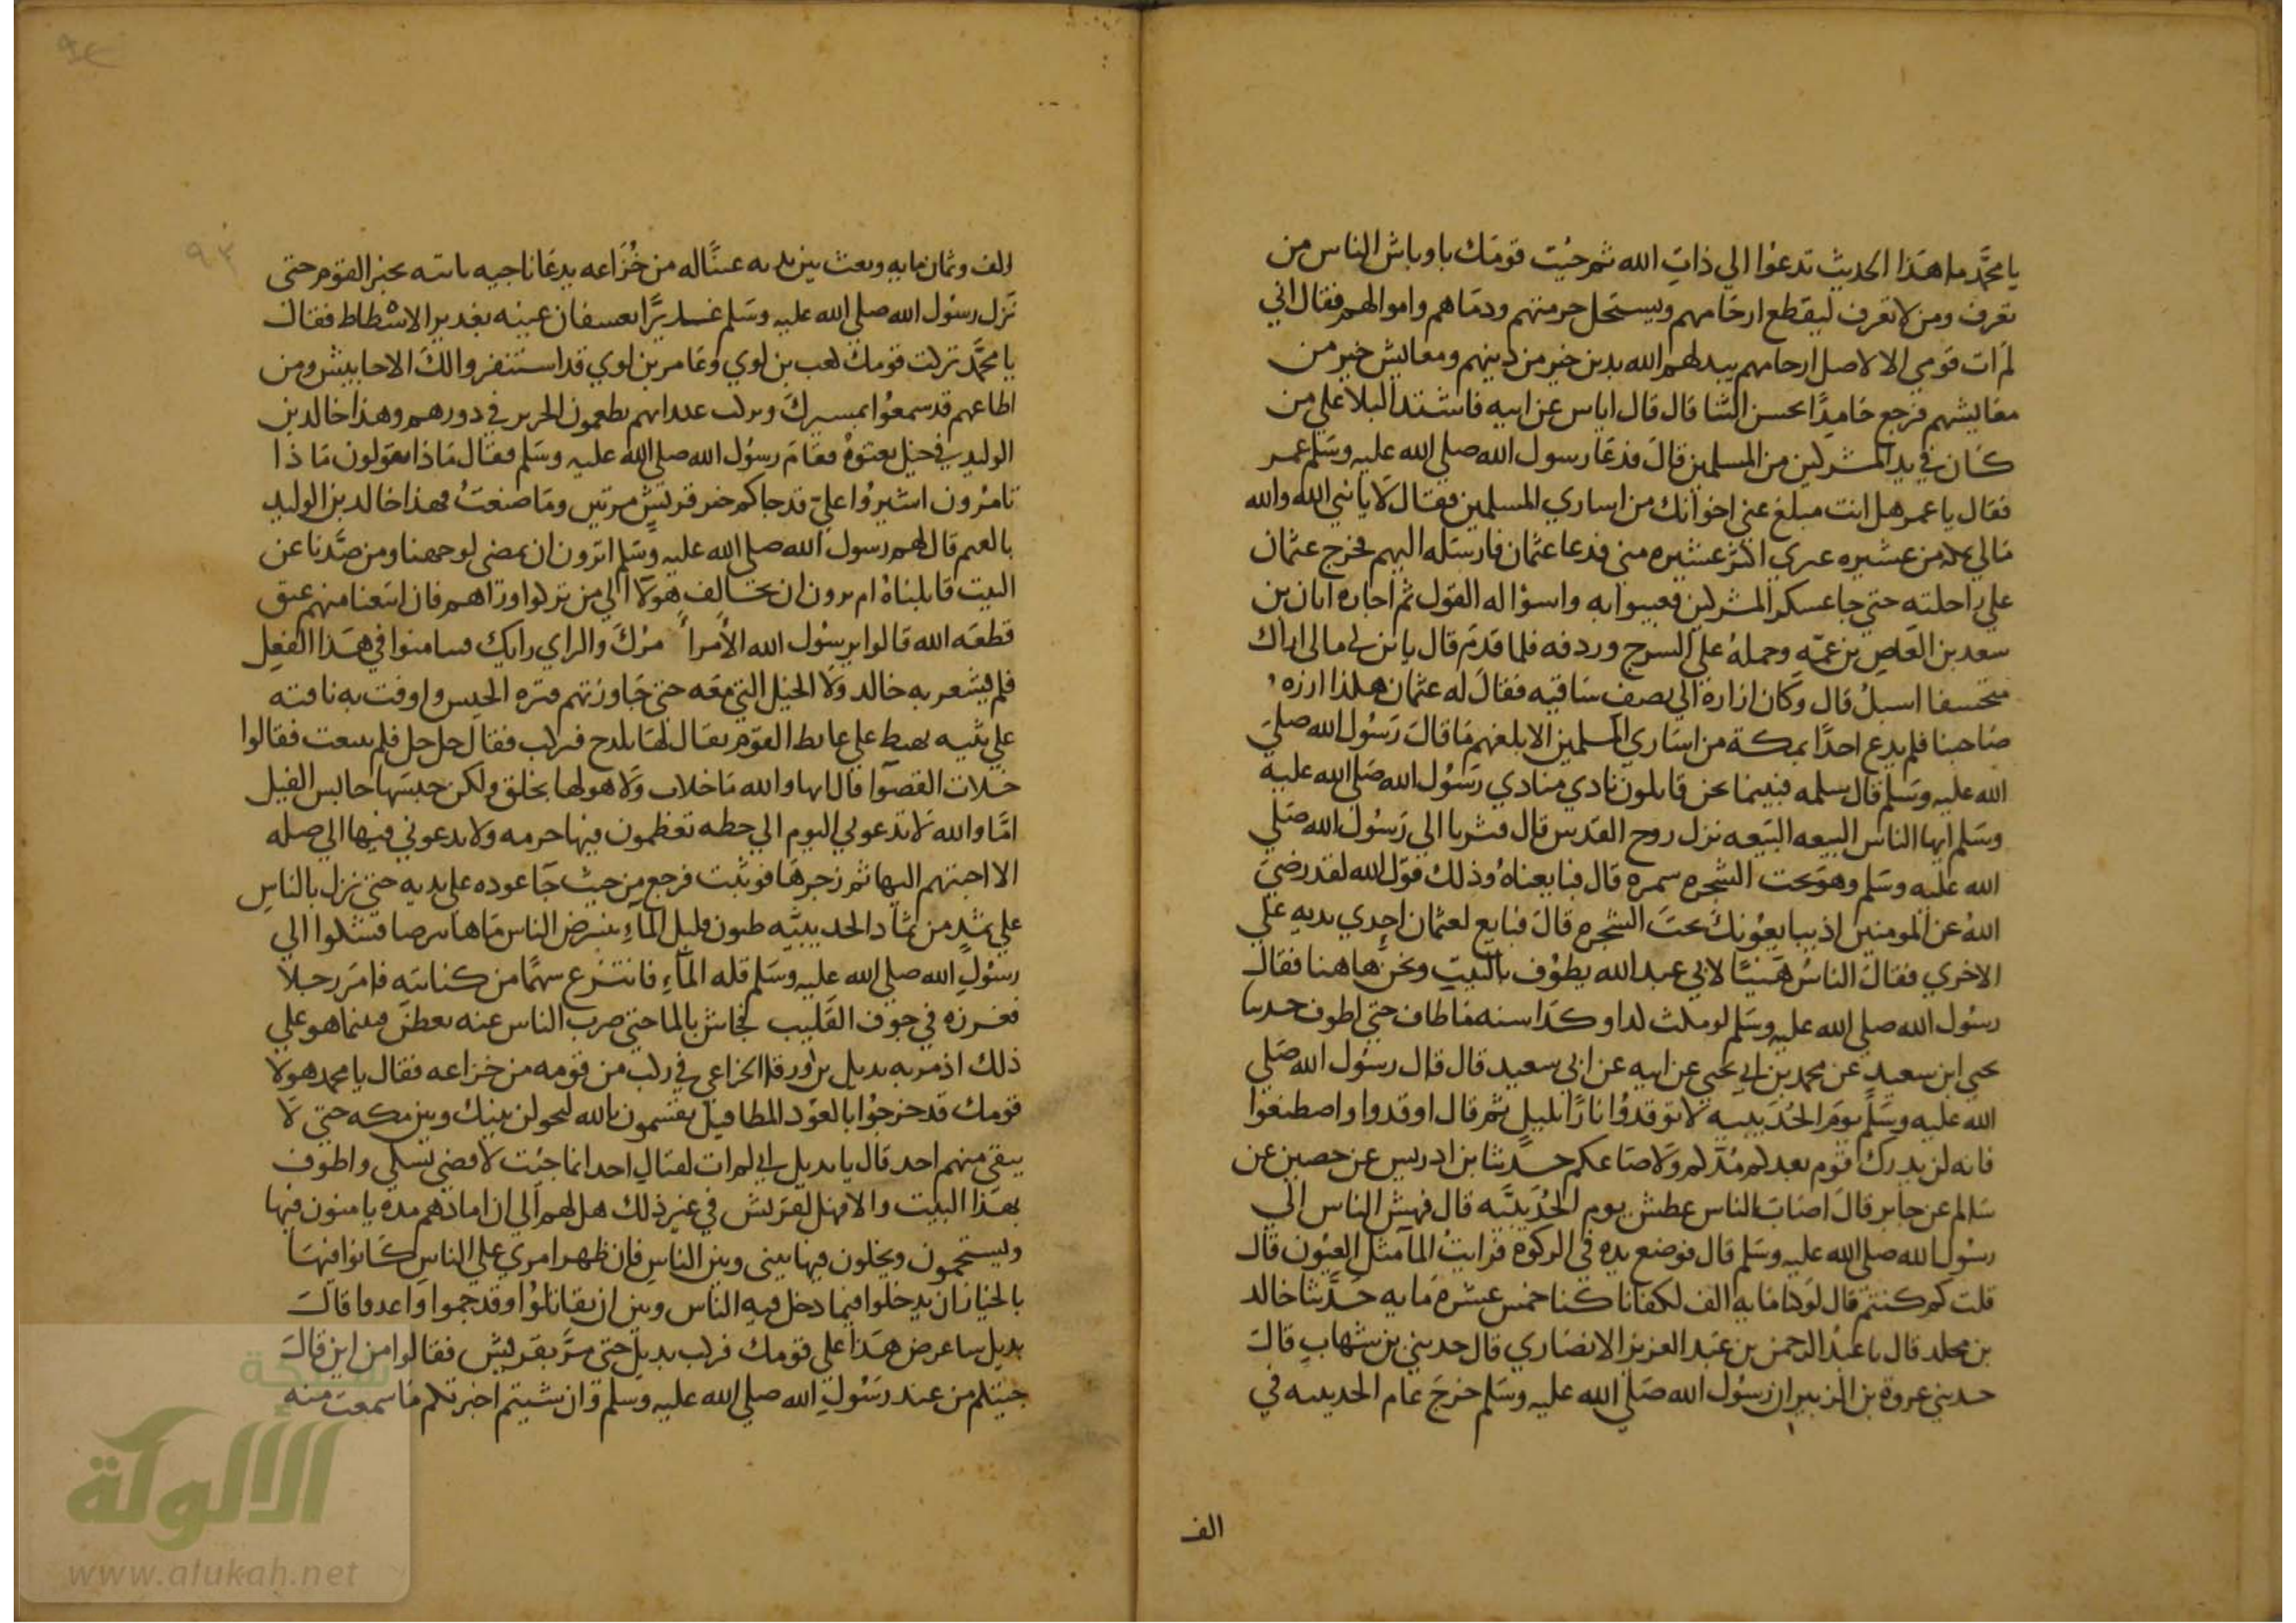 يا محمد ما هذا الحديث تدعوا الي ذات الله ثم جيت قومك باوباش الناس من
تعرف ومن لا تعرف ليقطع ارحامهم ويستحل حرمتهم ودماهم واموالهم فقال اني
لم ات قومي الا لاصل ارحامهم يبدلهم الله بدين خير من دينهم ومعايش خير من
معايشهم فرجع حامدًا بحسن الثنا قال قال اياس عن ابيه فاشتد البلا علي من
كان في يد المشركين من المسلمين قال فدعا رسول الله صلي الله عليه وسلم عمر
فقال يا عمر هل انت مبلغ عني اخوانك من اساري المسلمين فقال لا يا نبي الله والله
مالي بمكه من عشيره غيري اكثر عشيره مني فدعا عثمان فارسله اليهم فخرج عثمان
علي راحلته حتي جا عسكر المشركين فعبثوا به واسوا له القول ثم اجاره ابان بن
سعد بن العاص بن عمه وحمله علي السرج وردفه فلما قدم قال يا بن عم مالي اراك
متخشعا اسبل قال وكان ازاره الي نصف ساقيه فقال له عثمان هكذا ازره
صاحبنا فلم يدع احدًا بمكة من اساري المسلمين الا بلغهم ما قال رسول الله صلي
الله عليه وسلم قال سلمه فبينما نحن قايلون نادي منادي رسول الله صلي الله عليه
وسلم ايها الناس البيعه البيعه نزل روح القدس قال فسرنا الي رسول الله صلي
الله عليه وسلم وهو تحت الشجره سمره قال فبايعناه وذلك قول الله لقد رضي
الله عن المومنين اذ يبايعونك تحت الشجره قال فبايع لعثمان احدي يديه علي
الاخري فقال الناس هنيئًا لابي عبد الله يطوف بالبيت ونحن هاهنا فقال
رسول الله صلي الله عليه وسلم لو مكث كذا وكذا سنه ما طاف حتي اطوف حدثنا
يحي ابن سعيد عن محمد بن ابي يحيي عن ابيه عن ابي سعيد قال قال رسول الله صلي
الله عليه وسلم يوم الحديبيه لا توقدوا نارًا بليل ثم قال اوقدوا واصطنعوا
فانه لن يدرك قوم بعدكم مدكم ولا صاعكم حدثنا بن ادريس عن حصين عن
سالم عن جابر قال اصاب الناس عطش يوم الحديبيه قال فهش الناس الي
رسول الله صلي الله عليه وسلم قال فوضع يده في الركوه فرايت الما مثل العيون قال
قلت كم كنتم قال لو كنا مايه الف لكفانا كنا خمس عشره مايه حدثنا خالد
بن مخلد قال نا عبد الرحمن بن عبد العزيز الانصاري قال حدثني بن شهاب قال
حدثني عروة بن الزبير ان رسول الله صلي الله عليه وسلم خرج عام الحديبيه في
الف
٩٣
الف وثمان مايه وبعث بين يديه عينًا له من خزاعه يدعا ناجيه ياتيه بخبر القوم حتي
نزل رسول الله صلي الله عليه وسلم غديرًا بعسفان عينه بغدير الاشطاط فقال
يا محمد تركت قومك كعب بن لوي وعامر بن لوي قد استنفروا لك الاحابيش ومن
اطاعهم قد سمعوا بمسيرك وتركت عبدانهم يطعمون الخزير في دورهم وهذا خالد بن
الوليد في خيل بعثوه فقام رسول الله صلي الله عليه وسلم فقال ماذا تقولون ماذا
تامرون اشيروا علي قد جاكم خبر قريش مرتين وما صنعت فهذا خالد بن الوليد
بالغميم قال لهم رسول الله صلي الله عليه وسلم اترون ان نمضي لوجهنا ومن صدنا عن
البيت قاتلناه ام ترون ان نخالف هولا الي من تركوا وراهم فان اتبعنا منهم عنق
قطعه الله قالوا يرسول الله الامر امرك والراي رايك فتيامنوا في هذا الفعل
فلم يشعر به خالد ولا الخيل التي معه حتي جاوزتهم قتره الجيش واوفت به ناقته
علي ثنيه تهبط علي غايط القوم يقال لها بلدح فبركت فقال حل حل فلم تنبعث فقالوا
خلات القصوا قال انها والله ما خلات ولا هو لها بخلق ولكن حبسها حابس الفيل
امّا والله لا تدعوني اليوم الي خطه تعظمون فيها حرمه ولا يدعوني فيها الي صله
الا اجبتهم اليها ثم زجرها فوثبت فرجع من حيث جا عوده علي بديه حتي نزل بالناس
علي ثمد من ثماد الحديبيه ظنون قليل الماء يتبرض الناس ماها تبرضا فشكوا الي
رسول الله صلي الله عليه وسلم قله الماء فانتزع سهمًا من كنانته فامر رجلا
فغرزه في جوف القليب فجاش بالما حتي ضرب الناس عنه بعطن فبينما هو علي
ذلك اذ مر به بديل بن ورقا الخزاعي في ركب من قومه من خزاعه فقال يا محمد هولا
قومك قد خرجوا بالعوذ المطافيل يقسمون بالله ليحولن بينك وبين مكه حتي لا
يبقي منهم احد قال يا بديل اني لم ات لقتال احد انما جيت لاقضي نسكي واطوف
بهذا البيت والا فهل لقريش في غير ذلك هل لهم الي ان امادهم مده يامنون فيها
ويستجمون ويخلون فيها بيني وبين الناس فان ظهر امري علي الناس كانوا فيها
بالخيار ان يدخلوا فيما دخل فيه الناس وبين ان يقاتلوا وقد جموا واعدوا قال
بديل ساعرض هذا علي قومك فركب بديل حتي مر بقريش فقالوا من اين قال
جيتكم من عند رسول الله صلي الله عليه وسلم وان شيتم اخبرتكم ما سمعت منه
شبكة
الألوكة
www.alukah.net